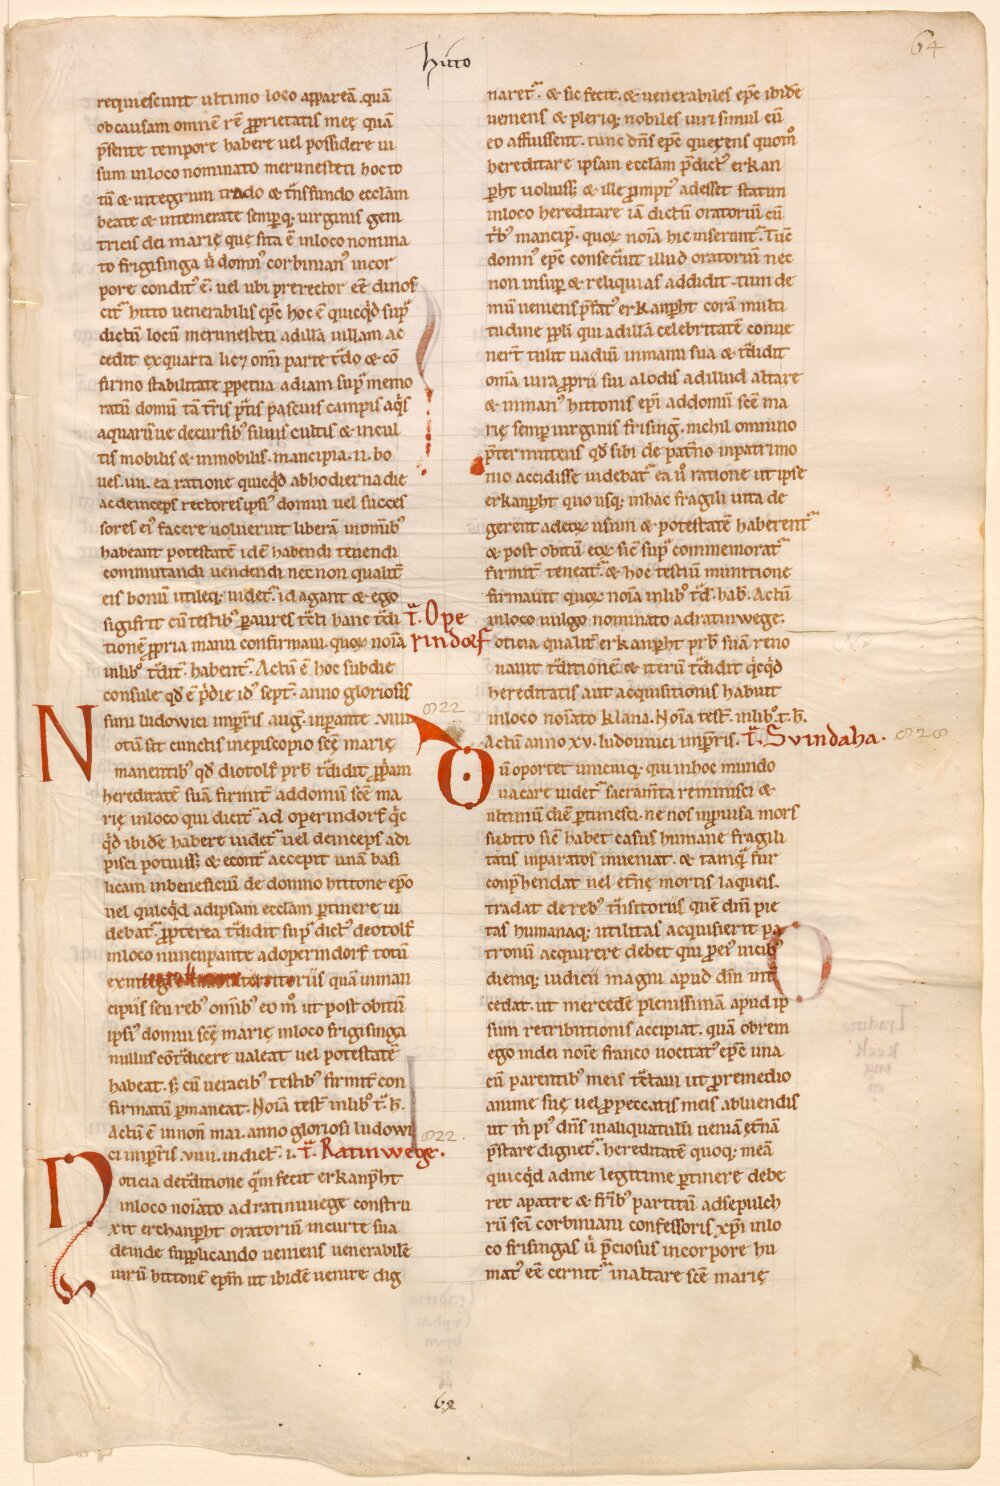 Hitto
64
requiescunt ultimo loco appareā. quā
ob causam omnē rē ꝓprietatis meę quā
p̄sente tempore habere uel possidere ui
sum in loco nominato merunesteti hoc to
tū & integrum trado & t̄nsfundo ecclām
beate & intemerate semꝑq; uirginis geni
tricis dei marię que sita ē in loco nomina
to frigisinga ů domn᷒ corbinian᷒ in cor
pore condit᷒ ē. uel ubi prerector eē dinos
cit᷑ hitto uenerabilis ep̄c hoc ē quicq̇d sup᷑
dictū locū merunesteti ad illā uillam ac
cedit ex quarta licꝫ om̄i parte t᷑do & cō
firmo stabilitate ꝑpetua ad iam sup᷑ memo
ratū domū tā t̄ris p᷑tis pascuis campis aq̇s
aquarūue decursib᷒ siluis cultis & incul
tis mobilis & inmobilis. mancipia .ii. bo
ues .iii. ea ratione quicq̇d ab hodierna die
ac deinceps rectores ipsi᷒ domui uel succes
sores ei᷒ facere uoluerint liberā in om̄ib᷒
habeant potestatē idē habendi tenendi
commutandi uendendi nec non qualit̄
eis bonū utileq; uidet᷑. id agant & ego
sigifrit cū testib᷒ ꝑ aures t̄cti hanc t᷑di
tionē ꝓpria manu confirmaui. quoꝝ noīa
in lib᷒ t᷑dit᷑. habent᷑. Actū ē hoc sub die
consule qd̄ ē ṗdie id᷒ sept̄. anno gloriosis
simi ludowici imꝑris aug̃. inꝑante .viiii.
t᷑. Ope
rindorf
822
Notū sit cunctis in episcopio scē marię
manentib᷒ qd̄ diotolf prb̄ t᷑didit ꝓp̄am
hereditatē suā firmit̄ ad domū scē ma
rię in loco qui dicit᷑ ad operindorf q̇c
q̇d ibidē habere uidet᷑ uel deinceps adi
pisci potuiss; & econt᷑ accepit unā basi
licam in beneficiū de domno hittone ep̄o
uel quicq̇d ad ipsam ecclām ꝑtinere ui
debat᷑. ꝓpterea t᷑didit sup᷑ dict᷒ deotolf
in loco nuncupante ad operindorf totū
territoriis quā in man
cipiis seu reb᷒ om̄ib᷒ eo m̊ ut post obitū
ipsi᷒ domui scē marię in loco frigisinga
nullus cōt᷑dicere ualeat uel potestatē
habeat. s; cū ueracib᷒ testib᷒ firmit̄ con
firmatū ꝑmaneat. Noīa test᷑. in lib᷒ t᷑. h̄.
Actū ē in non̄ mai. anno gloriosi ludowi
ci imꝑris. viiii. indict̄. i. t᷑. Ratinwege.
822.
Noticia de t᷑ditione q̄m fecit erkanꝑht
in loco noīato ad ratinuuege constru
xit erchanꝑht oratoriū in curte sua
deinde supplicando ueniens uenerabilē
uirū hittonē ep̄m ut ibidē uenire dig
naret᷑. & sic fecit. & uenerabiles ep̄c ibidē
ueniens & pleriq; nobiles uiri simul cū
eo affuissent. tunc dn̄s ep̄c querens quom̊
hereditare ipsam ecclām p̄dict᷒ erkan
ꝑht uoluiss; & ille ꝓmpt᷒ adesset statim
in loco hereditare iā dictū oratoriū cū
t᷑b᷒ mancip̄. quoꝝ noīa hic inserunt᷑. Tūc
domn᷒ ep̄c consecuit illud oratoriū nec
non insuꝑ & reliquias addidit. tum de
mū ueniens p̄fat᷒ erkanꝑht corā multi
tudine ppli qui ad illā celebritatē conue
nert̄ tulit uadiū in manu sua & t᷑didit
om̄a iura ꝓprii sui alodis ad illud altare
& in man᷒ hittonis ep̄i ad domū scē ma
rię semꝑ uirginis frising̃. nichil omnino
p̄termittens qd̄ sibi de pat̄no in patrimo
nio accidisse uidebat᷑ ea ů ratione ut ipse
erkanꝑht quo usq; in hac fragili uita de
gerent adeoꝝ usum & potestatē haberent᷑
& post obitū eoꝝ sic̄ sup᷑ commemorat᷑
firmit̄ teneat᷑. & hoc testiū munitione
firmauit quoꝝ noīa in lib᷒ t᷑d᷑. hab̄. Actū
in loco uulgo nominato ad ratinwege.
Noticia qualit̄ erkanꝑht prb̄ suā reno
uauit t᷑ditionē & iterū t᷑didit q̇cq̇d
hereditatis aut acquisitionis habuit
in loco noīato klana. Noīa test᷑. in lib᷒. t᷑. h̄.
Actū anno xv. ludouuici imꝑris. t᷑. Svindaha.
828
Dū oportet unicuiq; qui in hoc mundo
uacare uidet᷑ sacram̄ta reminisci &
ultimū diē ꝑtimesci. ne nos inprouisa mors
subito sic̄ habet casus humane fragili
tatis inparatos inueniat. & tamq᷑ fur
conp̄hendat uel et̄nę mortis laqueis.
tradat de reb᷒ t̄nsitoriis quē dm̄ pie
tas humanaq; utilitas acquisierit pa
tronū acquirere debet qui ꝓ ei᷒ uicib᷒
diemq; iudicii magni apud dm̄ int̄
cedat. ut mercedē plenissimā apud ip
sum retributionis accipiat. quā obrem
ego in dei noīe franco uocitat᷒ ep̄c una
cū parentib᷒ meis t᷑ctaui ut pro remedio
anime suę uel ꝓ peccatis meis abluendis
ut m̊ pi᷒ dn̄s in aliquatulū ueniā et̄nā
p̄stare dignet᷑. hereditatē quoq; meā
quicq̇d ad me legitime ꝑtinere debe
ret a patre & fr̄ib᷒ partitū ad sepulch
rū scī corbiniani confessoris xp̄i in lo
co frisingas ů p̄ciosus in corpore hu
mat᷒ eē cernit᷑ in altare scē marię
62